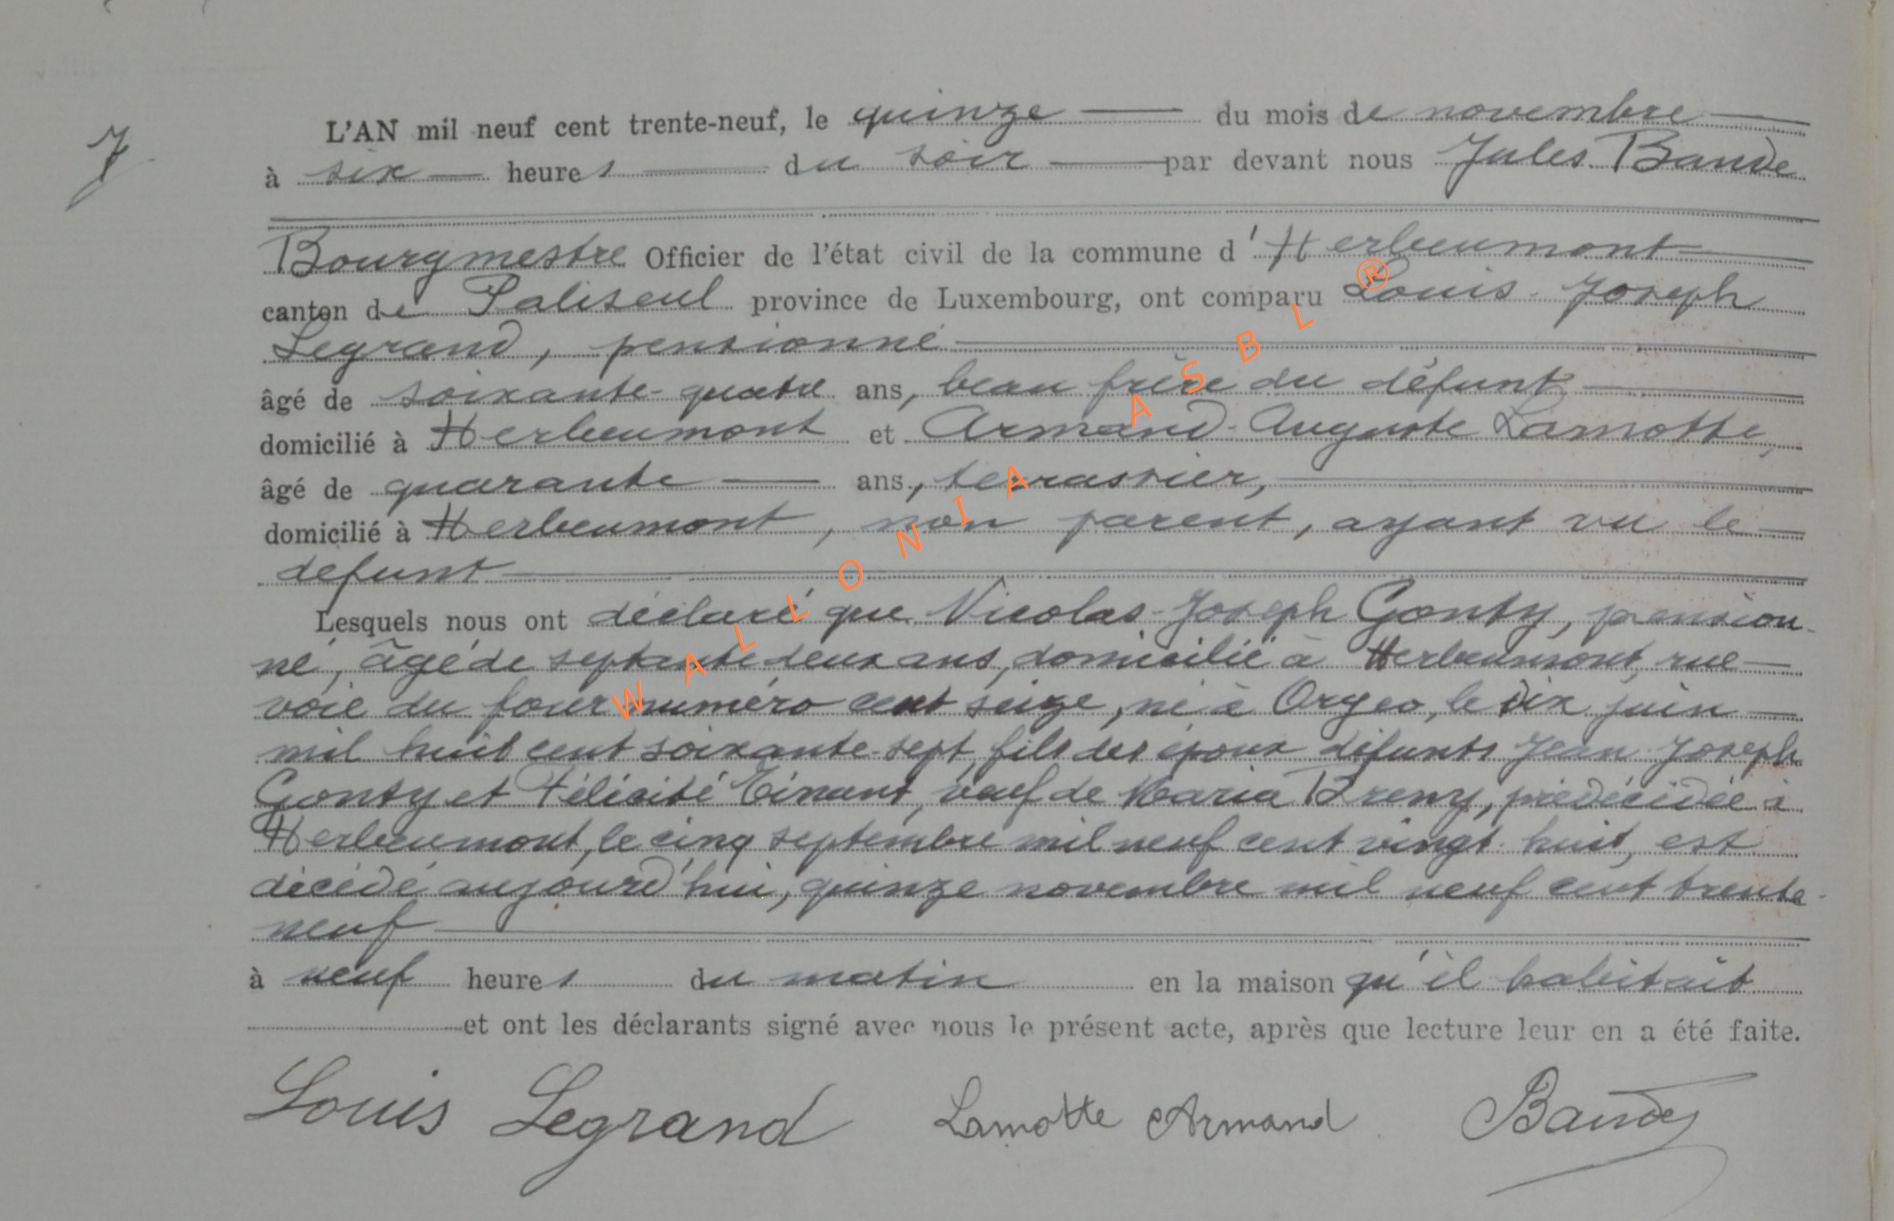 7
L'AN mil neuf cent trente-neuf, le quinze du mois de novembre
à six heures du soir par devant nous Jules Bande
Bourgmestre Officier de l'état civil de la commune d'Herbeumont
canton de Paliseul province de Luxembourg, ont comparu Louis-Joseph
Legrand, pensionné
âgé de soixante-quatre ans, beau frère du défunt
domicilié à Herbeumont et Armand-Auguste Lamotte,
âgé de quarante ans, terrassier,
domicilié à Herbeumont, non parent, ayant vu le
défunt
Lesquels nous ont déclaré que Nicolas-Joseph Gonty, pension-
né, âgé de septante deux ans, domicilié à Herbeumont, rue
voie du four numéro cent seize, né à Orgeo, le dix juin
mil huit cent soixante-sept, fils des époux défunts Jean-Joseph
Gonty et Félicité Tinant, veuf de Maria Breny, prédécédée à
Herbeumont, le cinq septembre mil neuf cent vingt-huit, est
décédé aujourd'hui, quinze novembre mil neuf cent trente-
neuf
à neuf heures du matin en la maison qu'il habitait
et ont les déclarants signé avec nous le présent acte, après que lecture leur en a été faite.
Louis Legrand Lamotte Armand Bande
WALLONIA ASBL ®